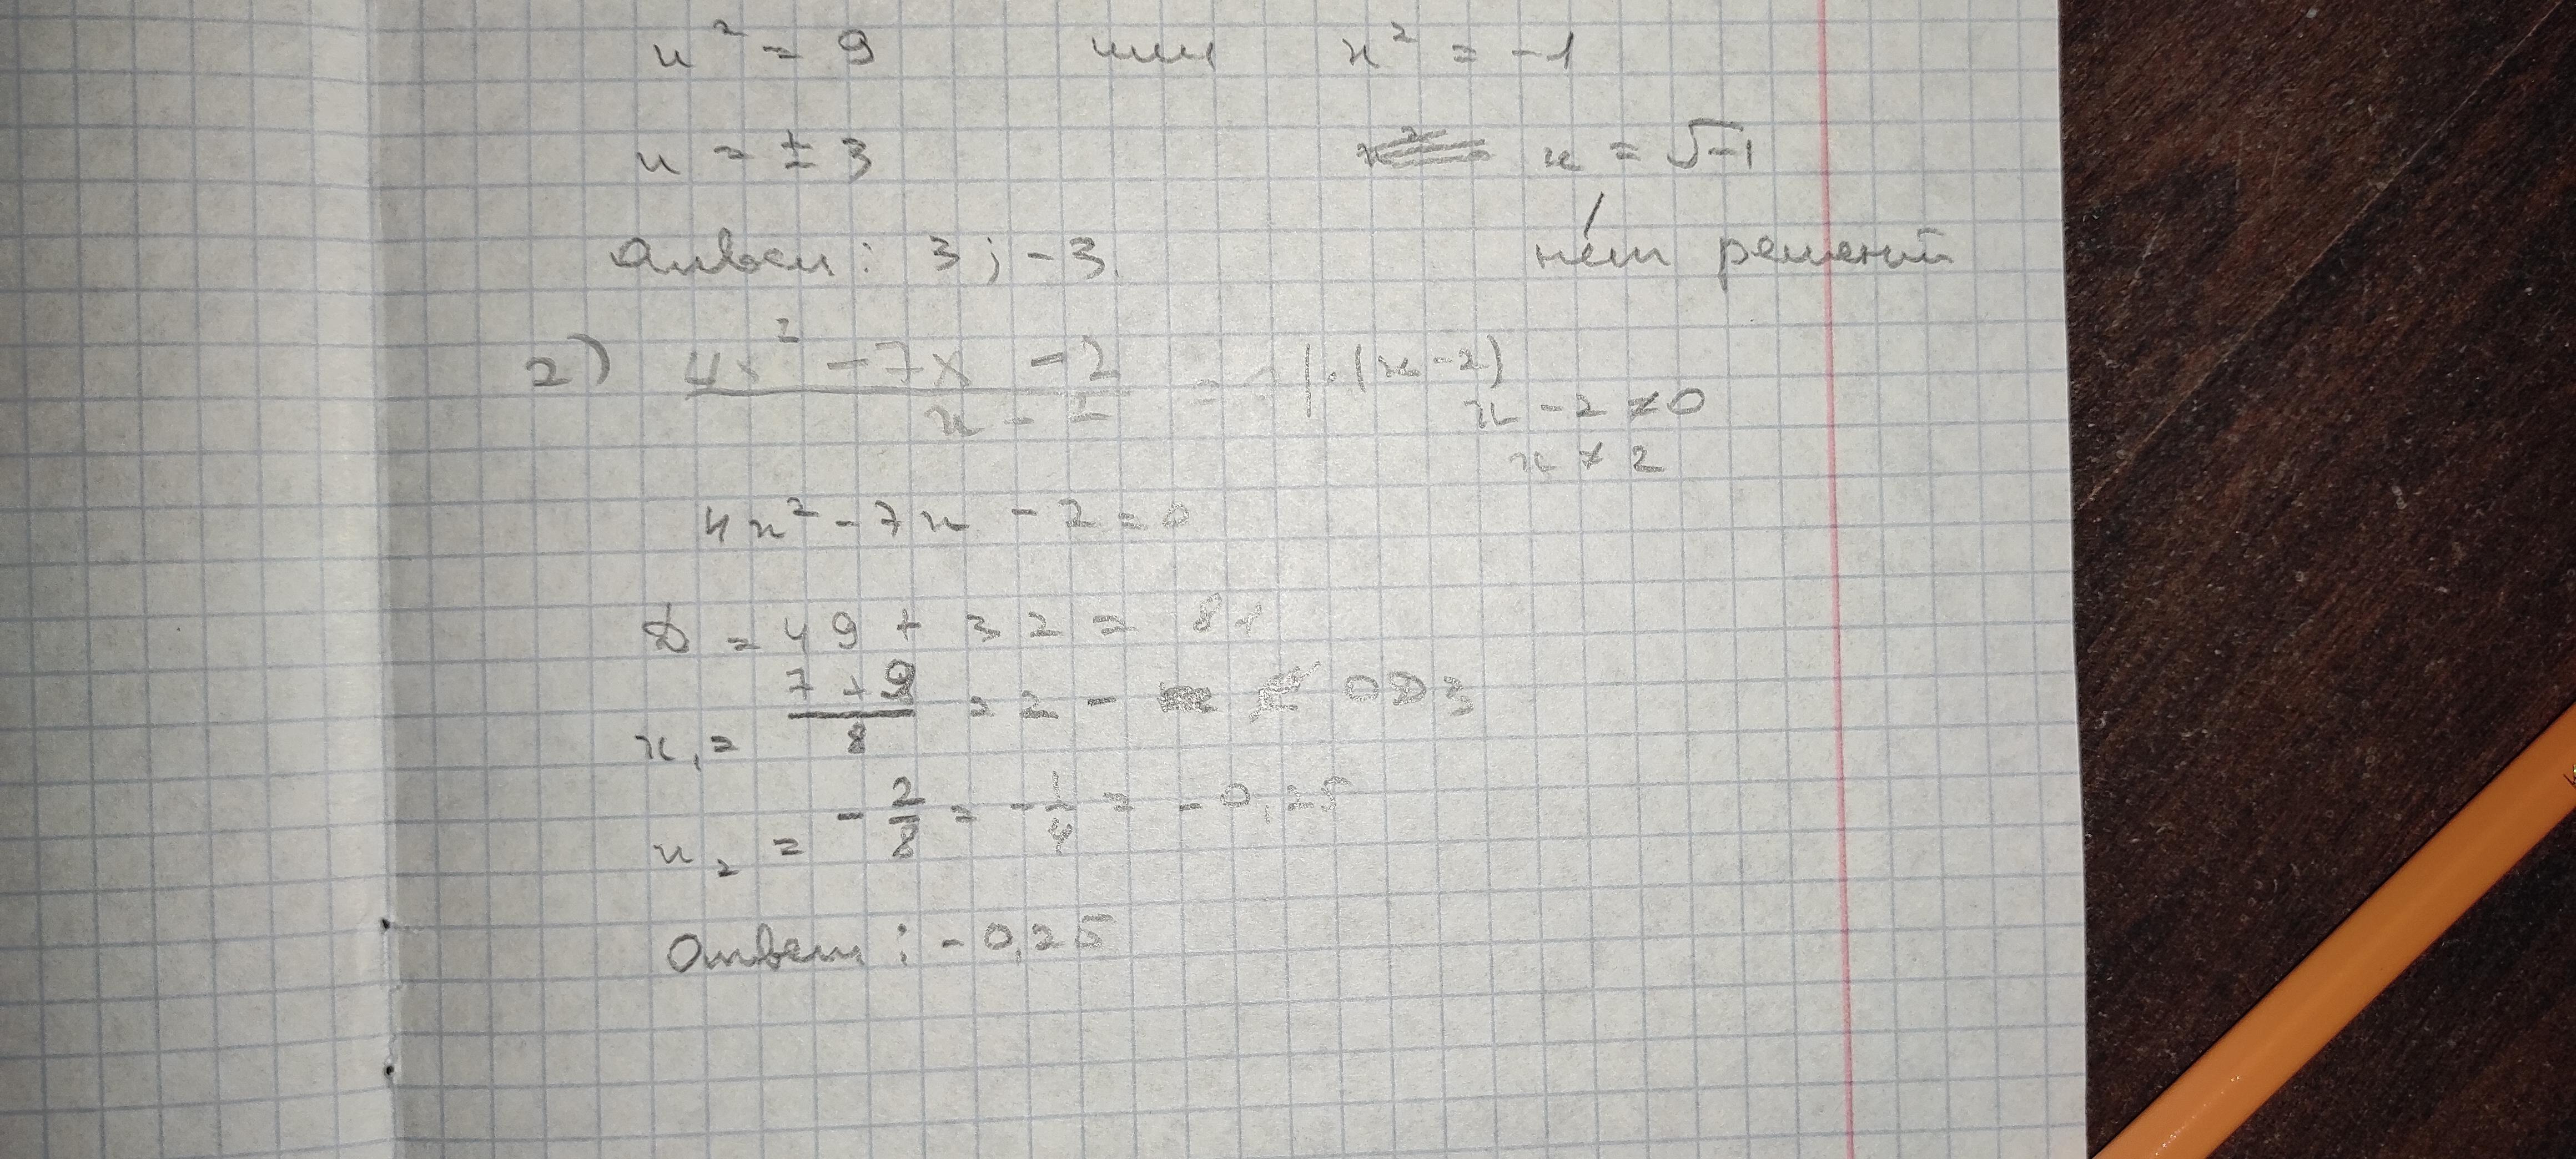 x² = 9 или x² = -1
x = ± 3 x = √-1
Ответ: 3; -3. нет решений
2) 4x² - 7x - 2 / x - 2 = |·(x - 2)
x - 2 ≠ 0
x ≠ 2
4x² - 7x - 2 = 0
D = 49 + 32 = 81
x₁ = 7 + 9 / 8 = 2 - ∉ ОДЗ
x₂ = - 2/8 = - 1/4 = - 0,25
Ответ: - 0,25